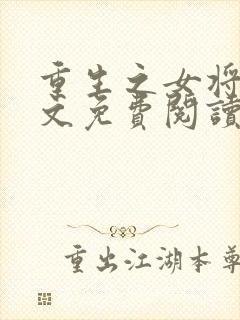 重生之女将
文免費閱讀
重出江湖本尊